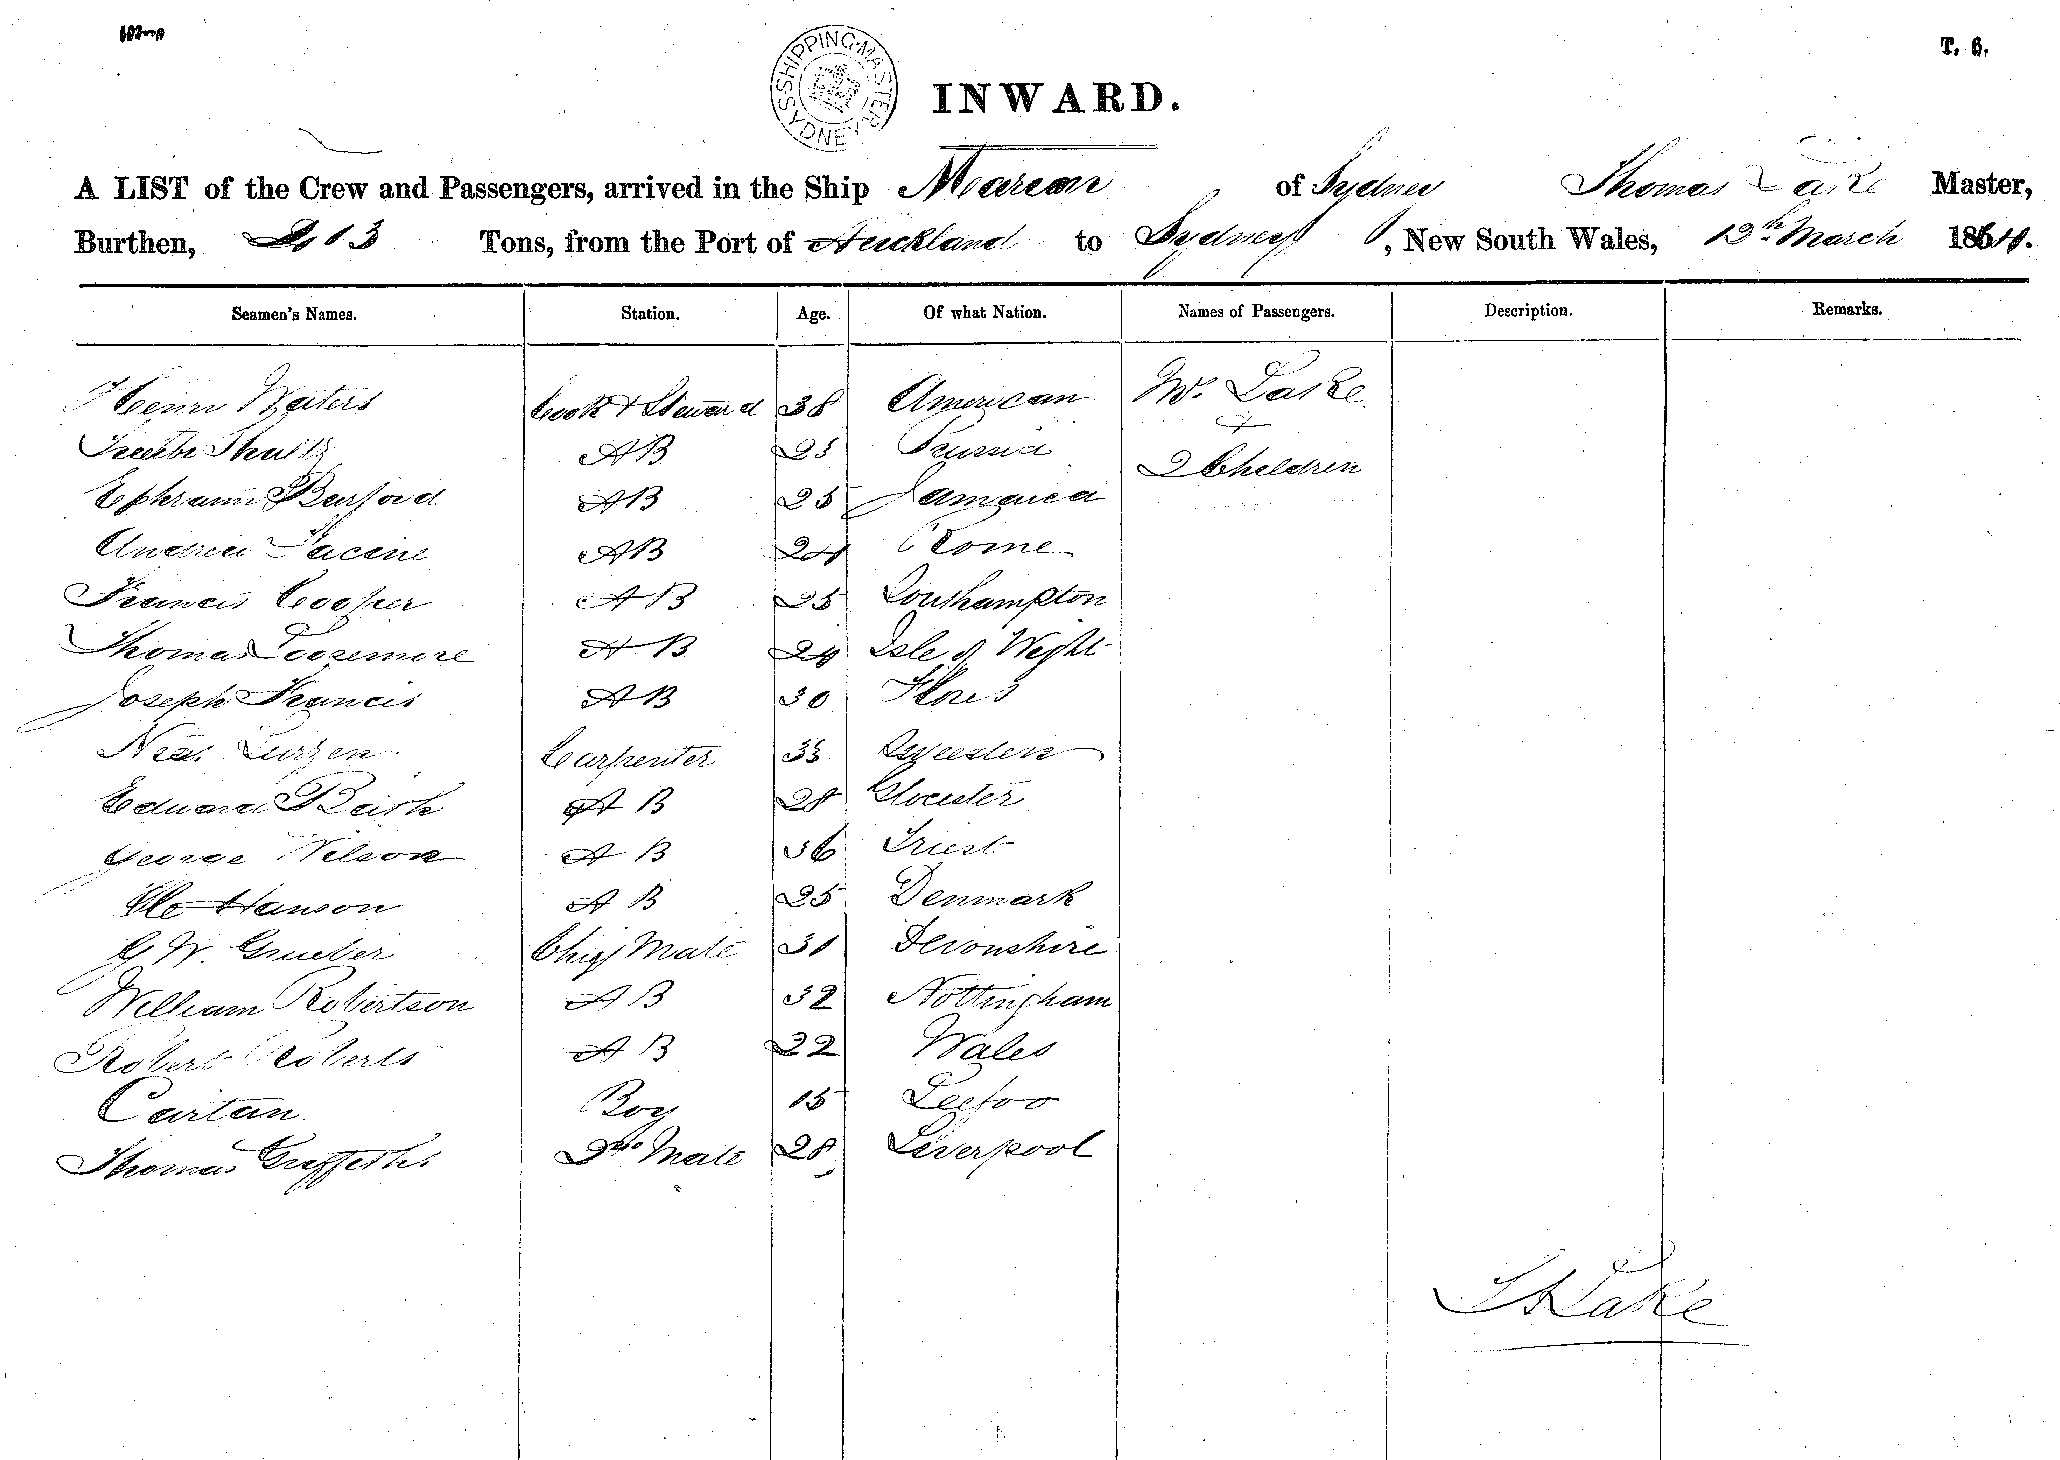 T. 6.
SHIPPING MASTER SYDNEY
INWARD.
A LIST of the Crew and Passengers, arrived in the Ship Marian of Sydney Thomas Lake Master,
Burthen, Tons, from the Port of Auckland to Sydney, New South Wales, 12th March 1864.
Seamen's Names. Station. Age. Of what Nation. Names of Passengers. Description. Remarks.
Henry Waters Cook & Steward 38 American Mrs. Lake
&
AB 25 Prussia
2 Children
Ephraim Burford AB 25 Jamaica
Andrea AB 24 Rome
Francis Cooper AB 25 Southampton
Thomas Loosemore AB 24 Isle of Wight
Joseph Francis AB 30 Flores
Carpenter 33 Sweeden
Edward AB 28 Glocester
George Wilson AB 36 Triest
Ole Hanson AB 25 Denmark
G W. Grueber Chief Mate 31 Devonshire
William Robertson AB 32 Nottingham
Robert Roberts AB 22 Wales
Cartan Boy 15 Leefoo
Thomas Griffiths 2nd Mate 28 Liverpool
Lake